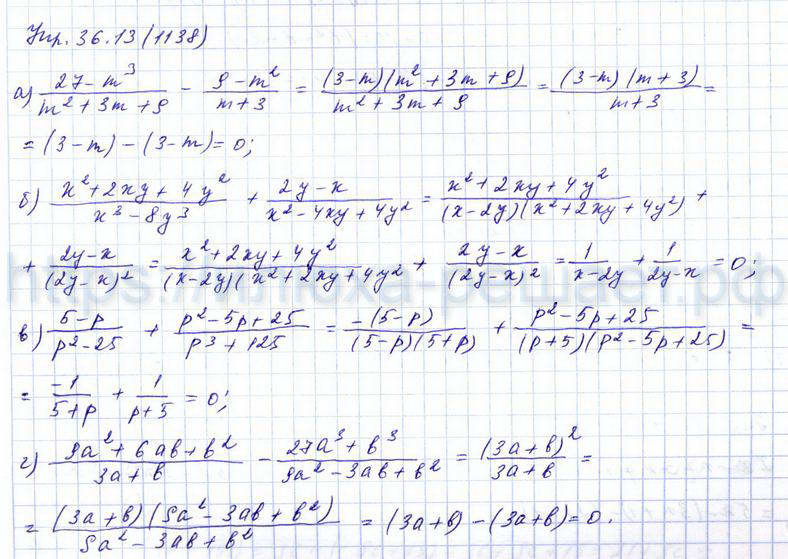 Упр. 36.13 (1138)
а) (27 - m³)/(m² + 3m + 9) - (9 - m²)/(m + 3) = ((3-m)(m² + 3m + 9))/(m² + 3m + 9) = ((3-m)(m+3))/(m+3) =
= (3-m) - (3-m) = 0;
б) (x² + 2xy + 4y²)/(x³ - 8y³) + (2y - x)/(x² - 4xy + 4y²) = (x² + 2xy + 4y²)/((x-2y)(x² + 2xy + 4y²)) +
+ (2y - x)/((2y - x)²) = (x² + 2xy + 4y²)/((x-2y)(x² + 2xy + 4y²) + (2y - x)/((2y - x)²) = 1/(x-2y) + 1/(2y-x) = 0;
в) (5-p)/(p² - 25) + (p² - 5p + 25)/(p³ + 125) = (-(5-p))/((5-p)(5+p)) + (p² - 5p + 25)/((p+5)(p² - 5p + 25)) =
= (-1)/(5+p) + 1/(p+5) = 0;
г) (9a² + 6ab + b²)/(3a + b) - (27a³ + b³)/(9a² - 3ab + b²) = ((3a+b)²)/(3a+b) =
= ((3a+b)(9a² - 3ab + b²))/(9a² - 3ab + b²) = (3a+b) - (3a+b) = 0.